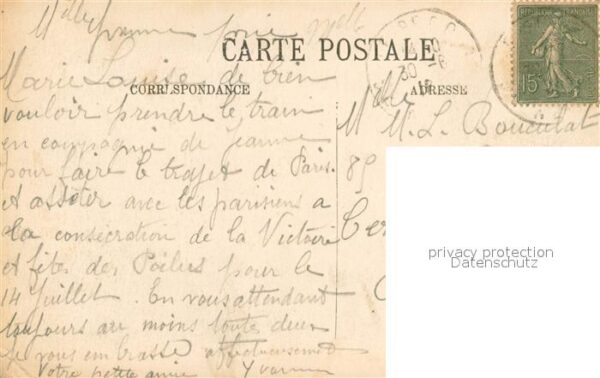 Mlle Yvonne prie
CARTE POSTALE
CORRESPONDANCE
ADRESSE
RÉPUBLIQUE FRANÇAISE
15c
Marie Louise de bien
vouloir prendre le train
en compagnie de Jeanne
pour faire le trajet de Paris.
et assister avec les parisiens a
la consécration de la Victoire
et fêtes des Poilus pour le
14 Juillet. En vous attendant
toujours au moins toutes deux
je vous embrasse affectueusement
Votre petite amie Yvonne
Mlle
M. L.
89
privacy protection
Datenschutz